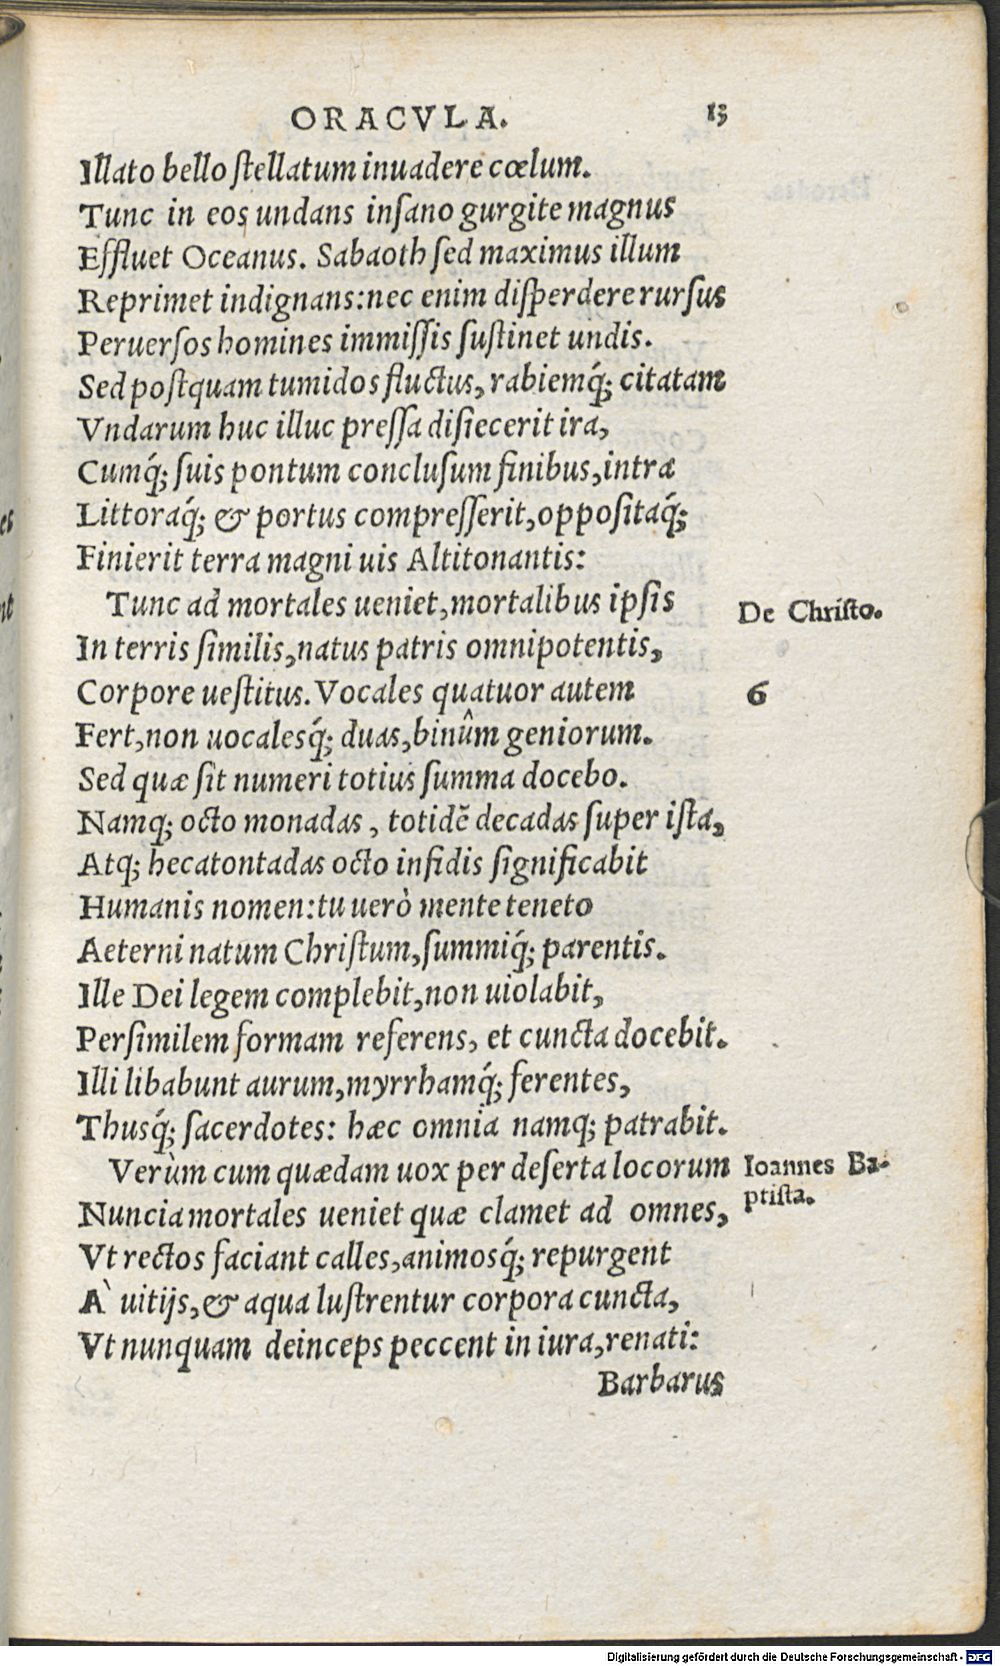 ORACVLA. 13
Illato bello ſtellatum inuadere cœlum.
Tunc in eos undans inſano gurgite magnus
Effluet Oceanus. Sabaoth ſed maximus illum
Reprimet indignans:nec enim diſperdere rurſus
Peruerſos homines immiſſis ſuſtinet undis.
Sed poſtquam tumidos fluctus, rabiemq́; citatam
Vndarum huc illuc preſſa diſiecerit ira,
Cumq́; ſuis pontum concluſum finibus,intra
Littoraq́; & portus compreſſerit,oppoſitaq́;
Finierit terra magni uis Altitonantis:
Tunc ad mortales ueniet,mortalibus ipſis De Chriſto.
In terris ſimilis,natus patris omnipotentis,
Corpore ueſtitus. Vocales quatuor autem 6
Fert,non uocalesq́; duas,binûm geniorum.
Sed quæ ſit numeri totius ſumma docebo.
Namq; octo monadas, totidẽ decadas ſuper iſta,
Atq; hecatontadas octo infidis ſignificabit
Humanis nomen:tu uerò mente teneto
Aeterni natum Chriſtum,ſummiq́; parentis.
Ille Dei legem complebit,non uiolabit,
Perſimilem formam referens, et cuncta docebit.
Illi libabunt aurum,myrrhamq́; ferentes,
Thusq́; ſacerdotes: hæc omnia namq; patrabit.
Verùm cum quædam uox per deſerta locorum Ioannes Ba-
Nuncia mortales ueniet quæ clamet ad omnes, ptiſta.
Vt rectos faciant calles,animosq́; repurgent
À uitijs,& aqua luſtrentur corpora cuncta,
Vt nunquam deinceps peccent in iura,renati:
Barbarus
Digitalisierung gefördert durch die Deutsche Forschungsgemeinschaft - DFG